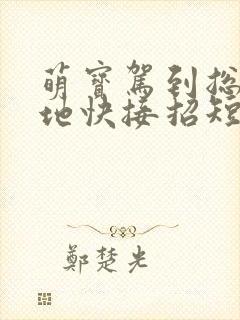 萌寶駕到总
地快接招短
鄭楚光